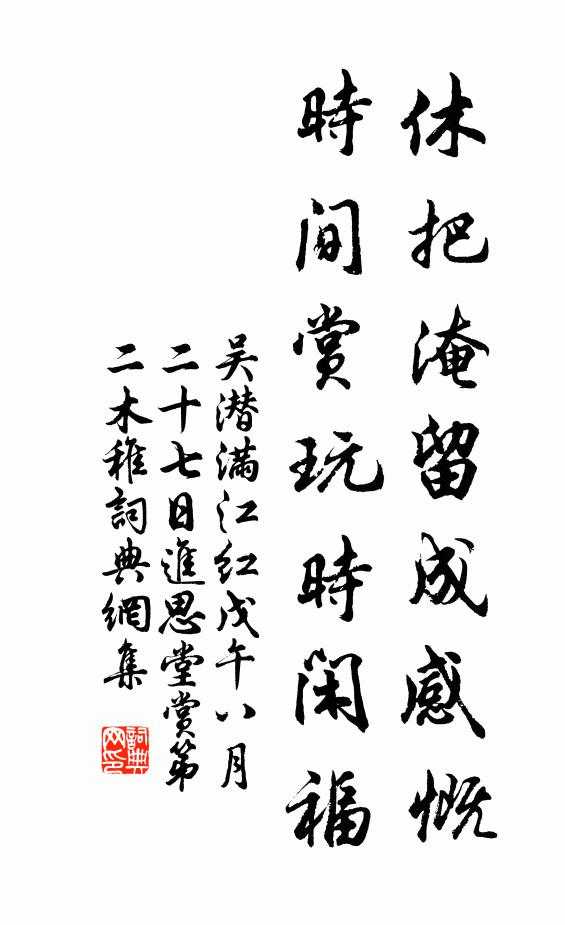 休把淹留成感慨
時間賞玩時閑福
吴潜滿江红戊午八月
二十七日進思堂賞第
二木稚詞典網集
詞典网印